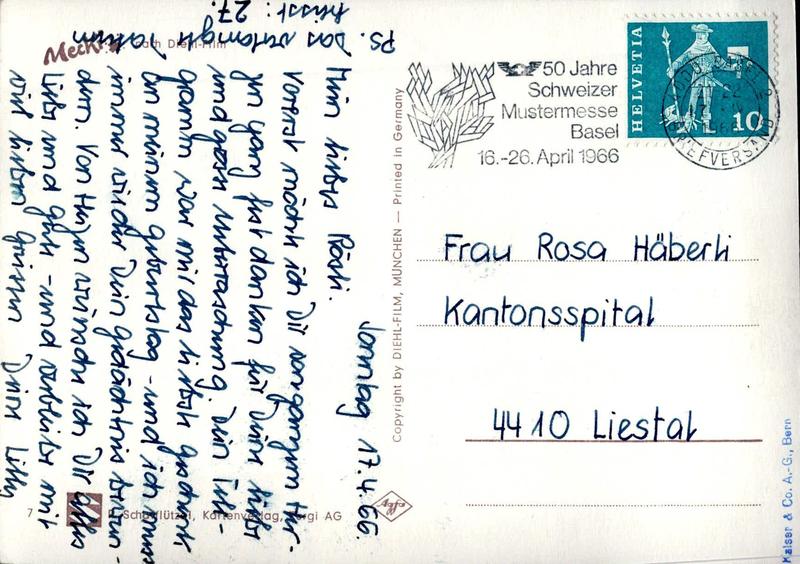 Ps. Das Datum
heisst: 27.
nach Diehl-Film
Sonntag 17.4.66.
Mein liebes Rösli.
Vorerst möchte ich Dir von ganzem Her-
zen ganz fest danken für Deine liebe
und grosse Ueberraschung. Dein Tele-
gramm war mir das liebste Geschenk
an meinem Geburtstag - und ich muss
immer wieder Dein Gedächtnis bewun-
dern. Von Herzen wünsche ich Dir alles
Liebe und Gute - und verbleibe mit
viel lieben Grüssen Deine Lilly
7
Kartenverlag, AG
Agfa
Copyright by DIEHL-FILM, MÜNCHEN — Printed in Germany
50 Jahre
Schweizer
Mustermesse
Basel
16.-26. April 1966
HELVETIA
10
BASEL 2
BRIEFVERSAND
Frau Rosa Häberli
Kantonsspital
4410 Liestal
Kaiser & Co. A.-G., Bern